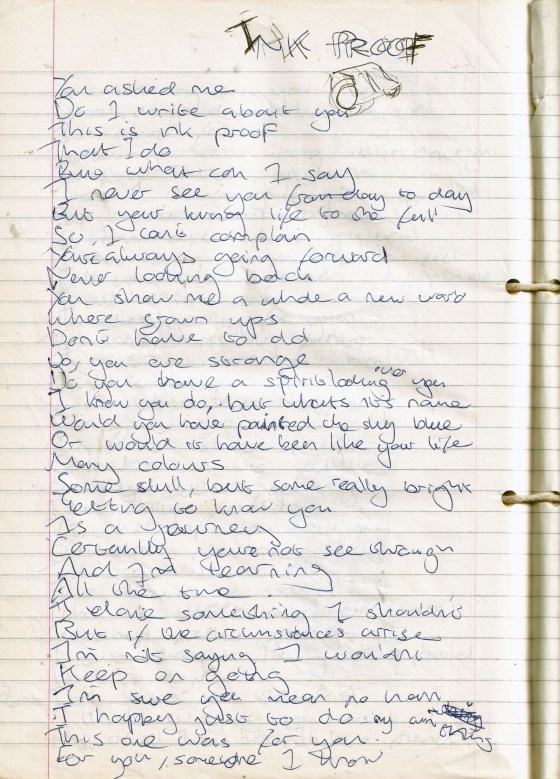 INK PROOF
You asked me
Do I write about you
This is ink proof
That I do
But what can I say
I never see you from day to day
But your living life to the full
So, I can't complain
You're always going forward
Never looking back
You show me a whole a new world
Where grown ups
Don't have to old
So, you are strange
Do you have a spirit looking over you
I know you do, but what's it's name
Would you have painted the sky blue
Or would it have been like your life
Many colours
Some dull, but some really bright
Getting to know you
Is a journey
Certainly you're not see through
And I'm learning
All the time.
I done something I shouldn't
But if the circumstances arise
I'm not saying I wouldn't
Keep on going
I'm sure you mean no harm
I happy just to do my own thing
This one was for you.
For you, someone I know